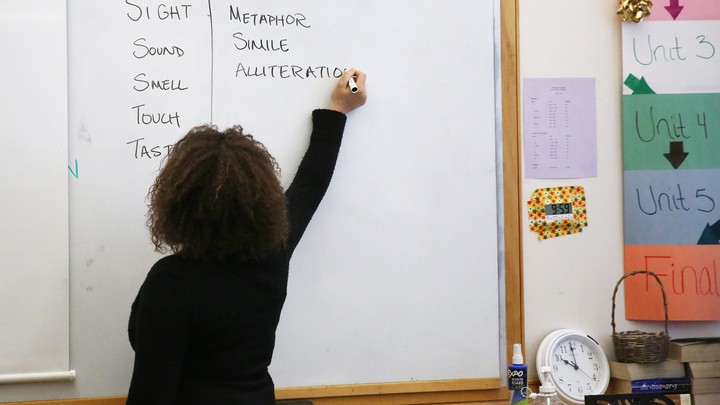 SIGHT
SOUND
SMELL
TOUCH
TAST
METAPHOR
SIMILE
ALLITERATIO
9:59
Unit 3
Unit 4
Unit 5
Final
EXPO